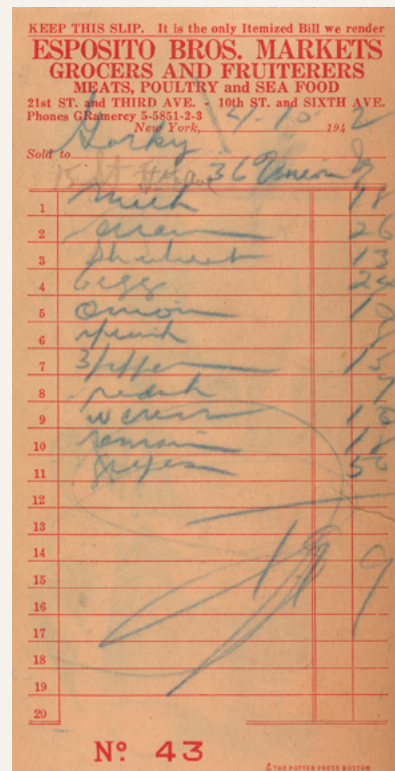 KEEP THIS SLIP. It is the only Itemized Bill we render
ESPOSITO BROS. MARKETS
GROCERS AND FRUITERERS
MEATS, POULTRY and SEA FOOD
21st ST. and THIRD AVE. - 10th ST. and SIXTH AVE.
Phones GRamercy 5-5851-2-3
New York, 4-10 1942
Sold to Gorky
36 Union Sq
1 Milk 18
2 26
3 13
4 egg 24
5 onion 10
6
7 15
8 radish 7
9 w cress
10 romain 18
11 50
12
13
14
15
16
17
18
19
20
No. 43
THE POTTER PRESS BOSTON